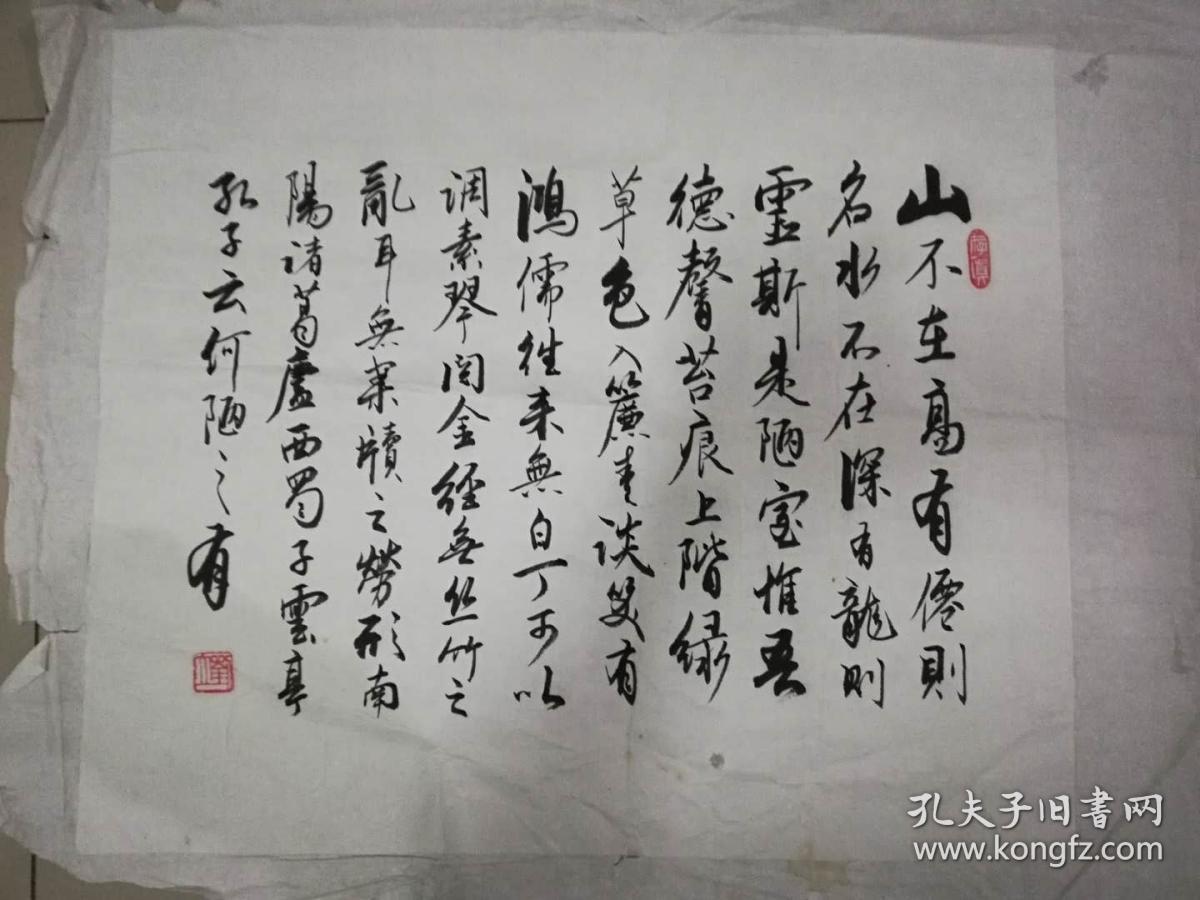 山不在高有僊則
名水不在深有龍则
霊斯是陋室惟吾
德馨苔痕上階緑
草色入簾青談笑有
鴻儒往来無白丁可以
调素琴閱金經無丝竹之
亂耳無案牘之勞形南
陽诸葛廬西蜀子雲亭
孔子云何陋之有
孔夫子旧书网
www.kongfz.com